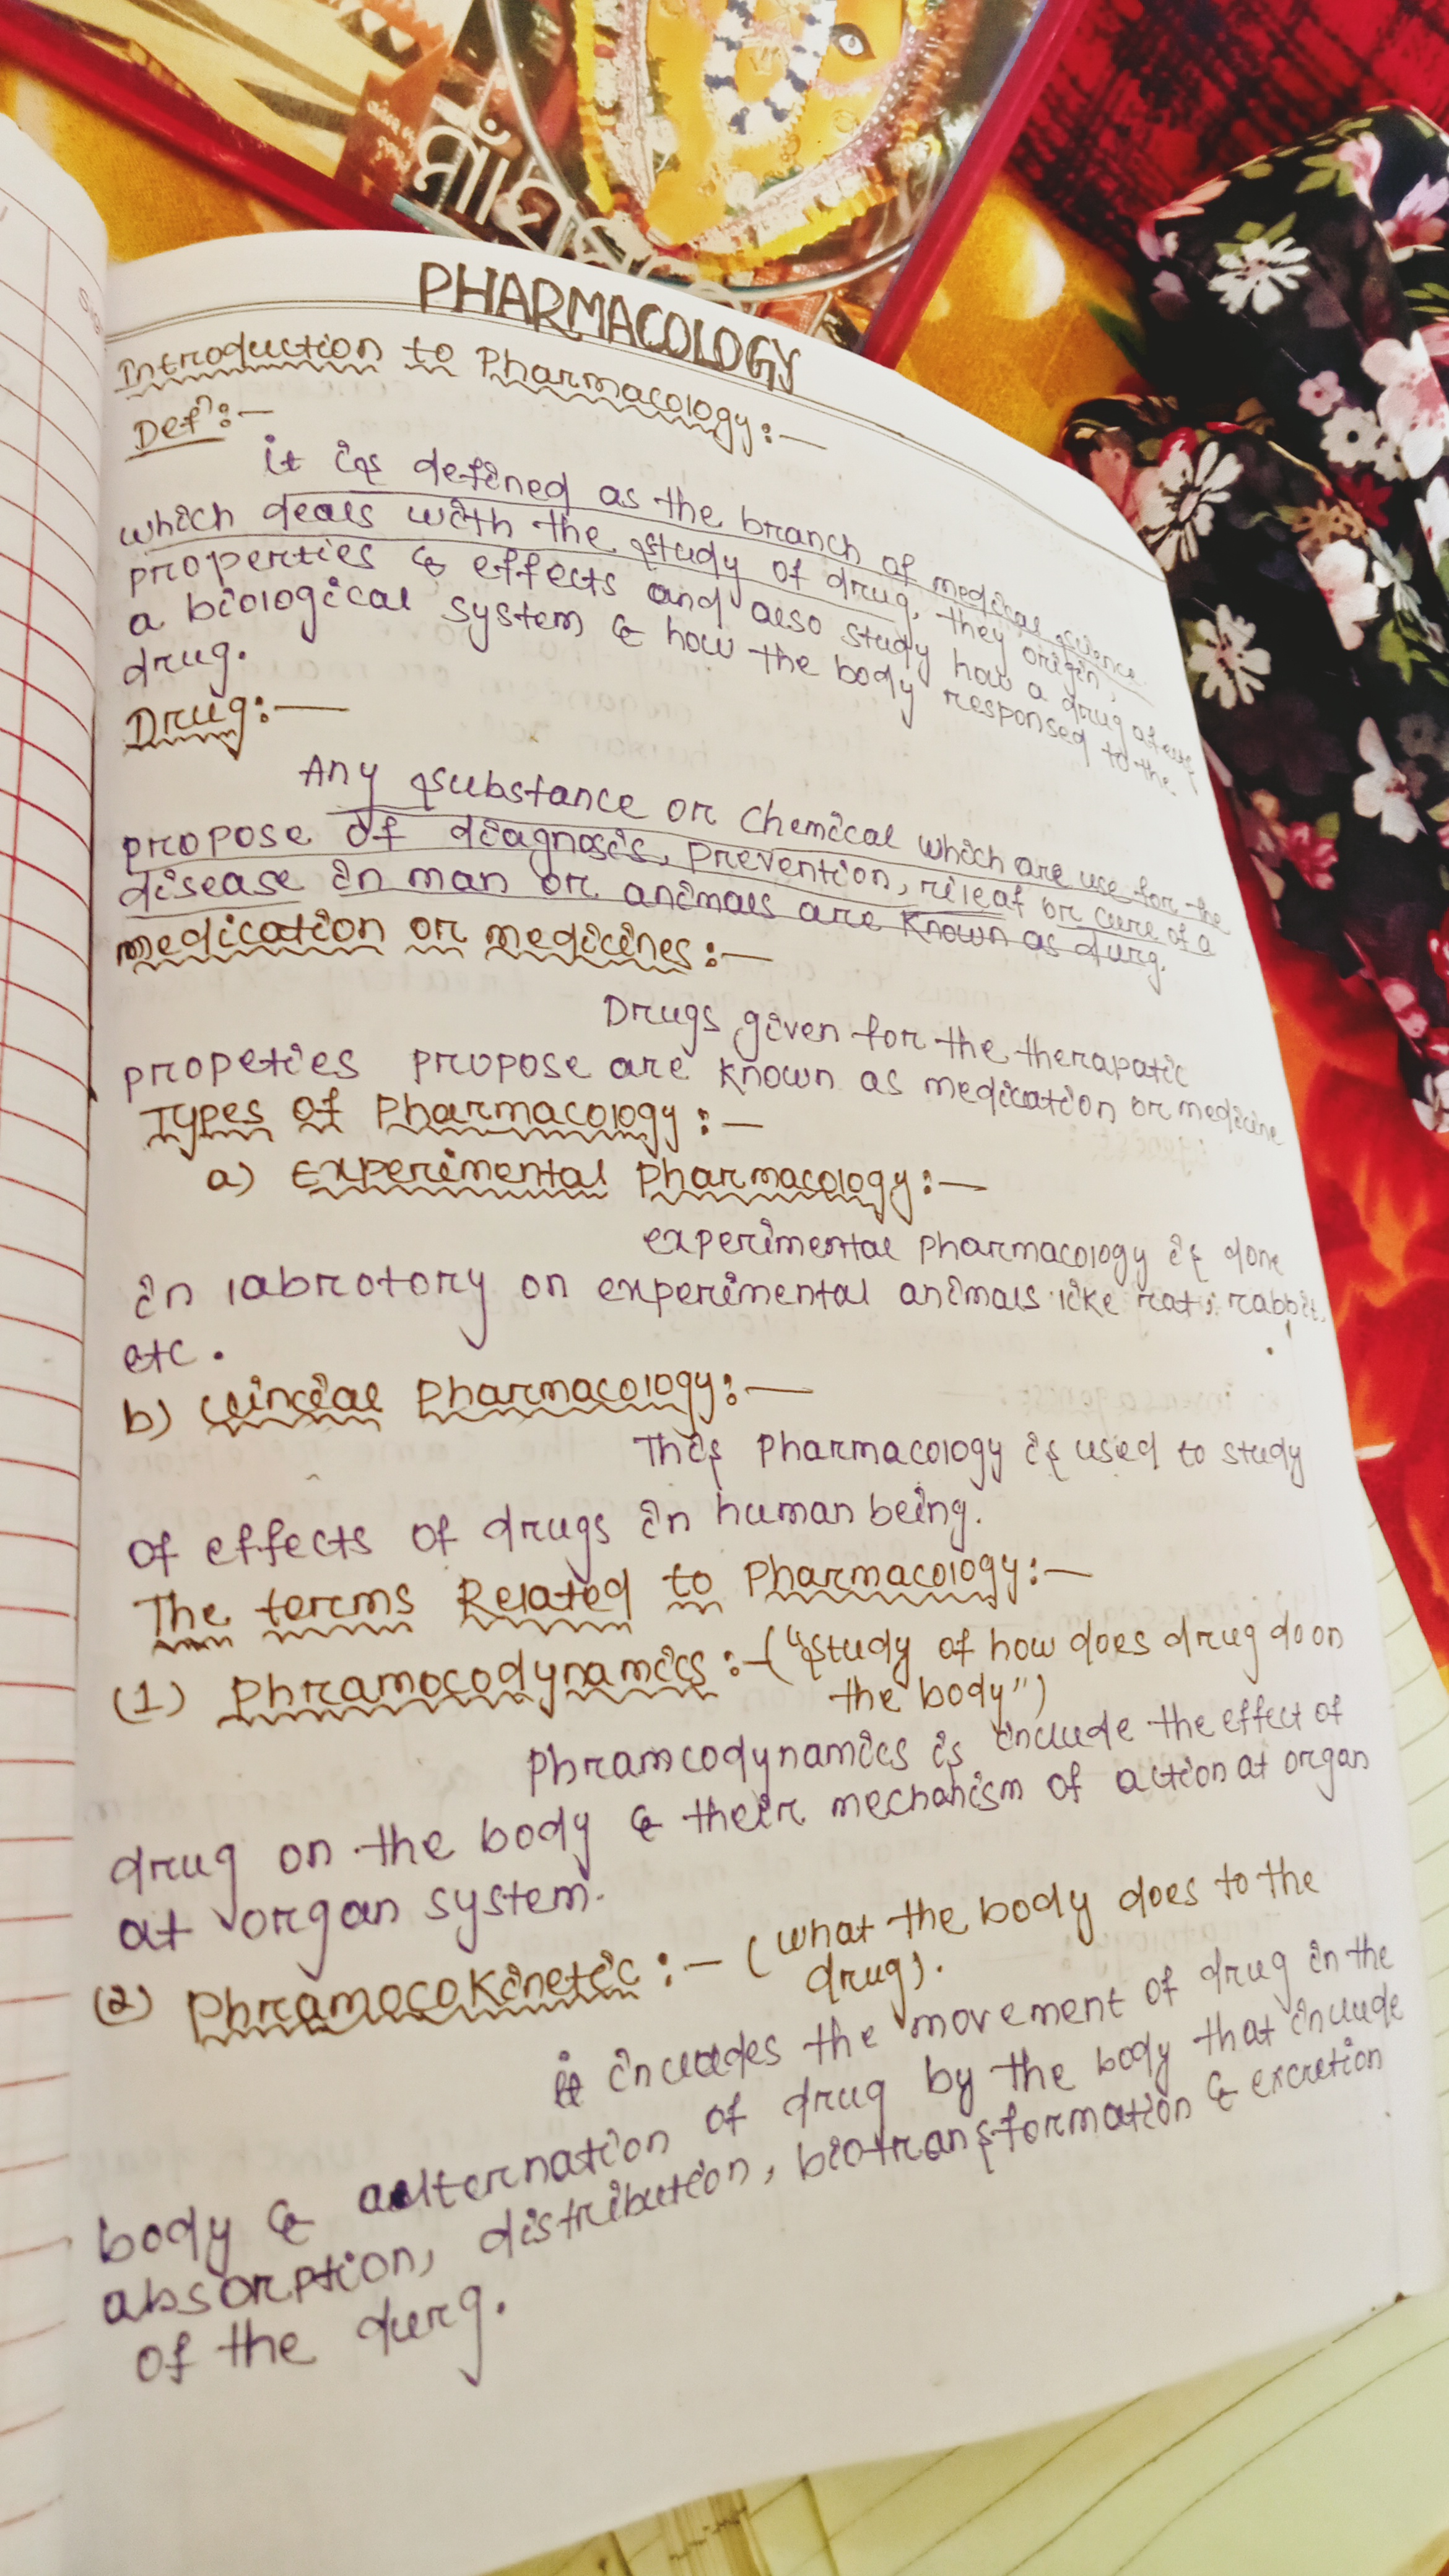 माँ
PHARMACOLOGY
Introduction to Pharmacology:—
Defⁿ:—
it is defined as the branch of medical science
which deals with the study of drug, they origin,
properties & effects and also study how a drug
a biological system & how the body responsed to the
drug.
Drug:—
Any substance or chemical which are use for the
propose of diagnosis, prevention, rileaf or cure of a
disease in man or animals are known as durg.
medication or medicines:—
Drugs given for the therapatic
propeties propose are known as medication or medicine
Types of Pharmacology:—
a) Experimental Pharmacology:—
experimental pharmacology is done
in labrotory on experimental animals like rat, rabbit,
etc.
b) Clincial Pharmacology:—
This Pharmacology is used to study
of effects of drugs in human being.
The terms Related to Pharmacology:—
(1) Phramocodynamics:—("study of how does drug do on
the body")
Phramcodynamics is include the effect of
drug on the body & their mechanism of action at organ
at organ system.
(2) PhramocoKinetic:—(what the body does to the
drug).
it includes the movement of drug in the
body & alternation of drug by the body that include
absorption, distribution, biotransformation & excretion
of the durg.